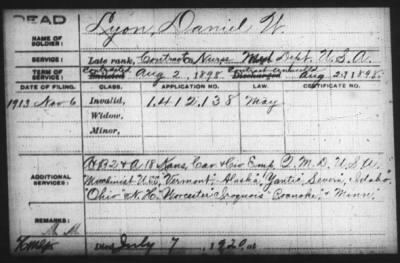 DEAD
NAME OF SOLDIER: Lyon, Daniel W.
SERVICE: Late rank, Contract Nurse Med Dept. U. S. A.
TERM OF SERVICE: Enlisted Aug 2, 1898. Discharged Aug 27, 1898.
DATE OF FILING. CLASS. APPLICATION NO. LAW. CERTIFICATE NO.
1913 Nov 6 Invalid, 1.412.138 May
Widow,
Minor,
ADDITIONAL SERVICES: B & A 18 Kans. Cav. & Civ. Emp. Q. M. D. U. S. A.
Machinist U.S.S. "Vermont, Alaska, Yantic, Severn, Idaho,
Ohio & N. H. Worcester Iroquois Roanoke, & Minn."
REMARKS:
Died July 7, 1920, at